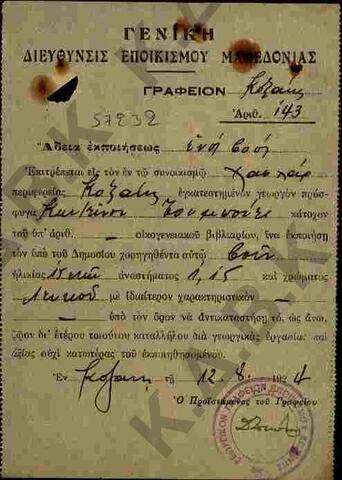 ΓΕΝΙΚΗ
ΔΙΕΥΘΥΝΣΙΣ ΕΠΟΙΚΙΣΜΟΥ ΜΑΚΕΔΟΝΙΑΣ
ΓΡΑΦΕΙΟΝ Κοζάνης
Ἀριθ. 143
57232
Ἄδεια ἐκποιήσεως ἑνός βοός
Ἐπιτρέπεται εἰς τὸν ἐν τῷ συνοικισμῷ
περιφερείας Κοζάνης ἐγκατεστημένον γεωργὸν πρόσ-
φυγα κάτοχον
τοῦ ὑπ' ἀριθ. — οἰκογενειακοῦ βιβλιαρίου, ἵνα ἐκποιήσῃ
τὸν ὑπὸ τοῦ Δημοσίου χορηγηθέντα αὐτῷ βοῦν
ἡλικίας ἀναστήματος 1,15 καὶ χρώματος
Λευκοῦ μὲ ἰδιαίτερον χαρακτηριστικὸν —
— ὑπὸ τὸν ὅρον νὰ ἀντικαταστήσῃ τό, ὡς ἄνω,
ζῷον δι' ἑτέρου τοιούτου καταλλήλου διὰ γεωργικὰς ἐργασίας καὶ
ἀξίας οὐχὶ κατωτέρας τοῦ ἐκποιηθησομένου.
Ἐν Κοζάνῃ τῇ 12. 8. 1924
Ὁ Προϊστάμενος τοῦ Γραφείου